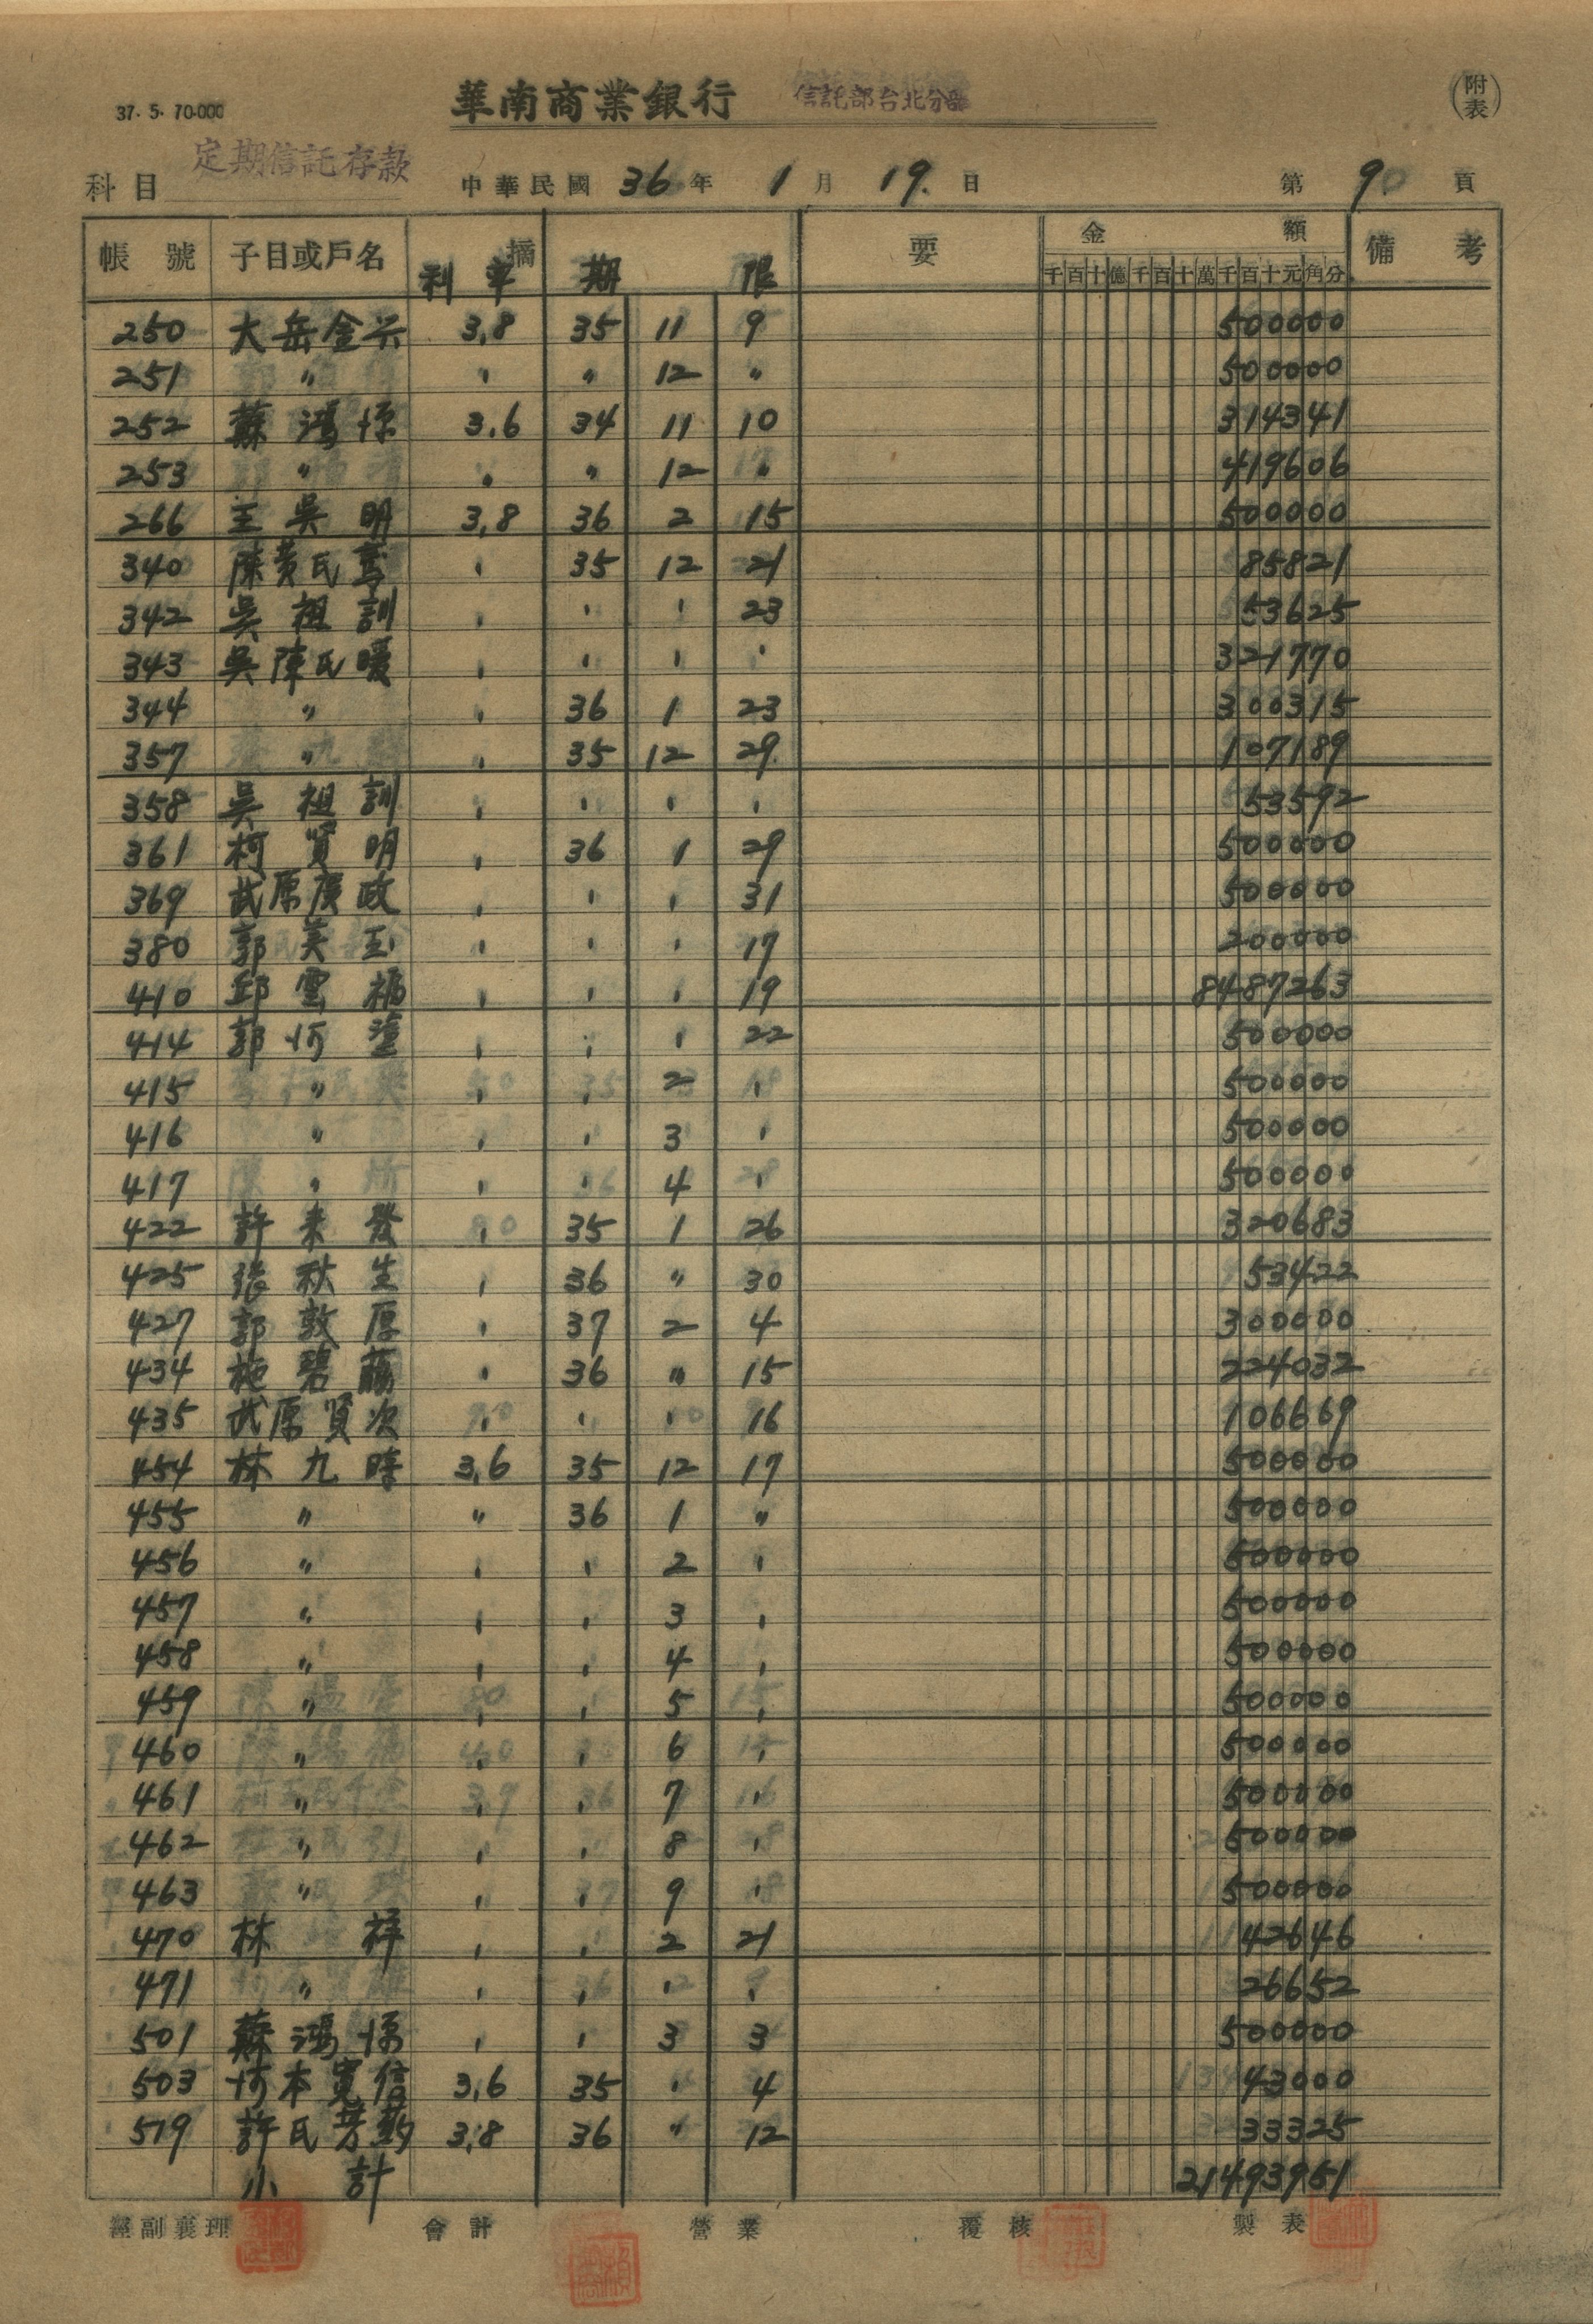 37. 5. 70.000
華南商業銀行 信託部台北分部
(附表)
科目 定期信託存款 中華民國 36 年 1 月 19. 日 第 9 頁
帳號 子目或戶名 摘 要 金額 備考
利率 期限 千百十億千百十萬千百十元角分
250 大岳金兴 3.8 35 11 9 500000
251 〃 〃 〃 12 〃 500000
252 蘇鴻 3.6 34 11 10 314341
253 〃 〃 〃 12 〃 419606
266 王吳明 3.8 36 2 15 500000
340 陳黃氏 〃 35 12 21 85821
342 吳祖訓 〃 〃 〃 23 53625
343 吳陳氏暖 〃 〃 〃 〃 321770
344 〃 〃 36 1 23 300315
357 〃 〃 35 12 29. 107189
358 吳祖訓 〃 〃 〃 〃 53592
361 柯賢明 〃 36 1 29 500000
369 武原廣政 〃 〃 〃 31 500000
380 郭美玉 〃 〃 〃 17 200000
410 邱雲福 〃 〃 〃 19 8487263
414 郭河 〃 〃 〃 22 500000
415 〃 〃 〃 2 〃 500000
416 〃 〃 〃 3 〃 500000
417 〃 〃 〃 4 〃 500000
422 許来發 〃 35 1 26 320683
425 張秋生 〃 36 〃 30 53422
427 郭敦厚 〃 37 2 4 300000
434 施碧 〃 36 〃 15 224032
435 武原賢次 〃 〃 〃 16 106669
454 林九 3.6 35 12 17 500000
455 〃 〃 36 1 〃 500000
456 〃 〃 〃 2 〃 500000
457 〃 〃 〃 3 〃 500000
458 〃 〃 〃 4 〃 500000
459 〃 〃 〃 5 〃 500000
460 〃 〃 〃 6 〃 500000
461 〃 〃 〃 7 〃 500000
462 〃 〃 〃 8 〃 500000
463 〃 〃 〃 9 〃 500000
470 林祥 〃 〃 2 21 42646
471 〃 〃 〃 〃 〃 26652
501 蘇鴻 〃 〃 3 3 500000
503 河本寬信 3.6 35 〃 4 43000
519 許氏 3.8 36 〃 12 33325
小計 21493951
經副襄理 會計 營業 覆核 製表